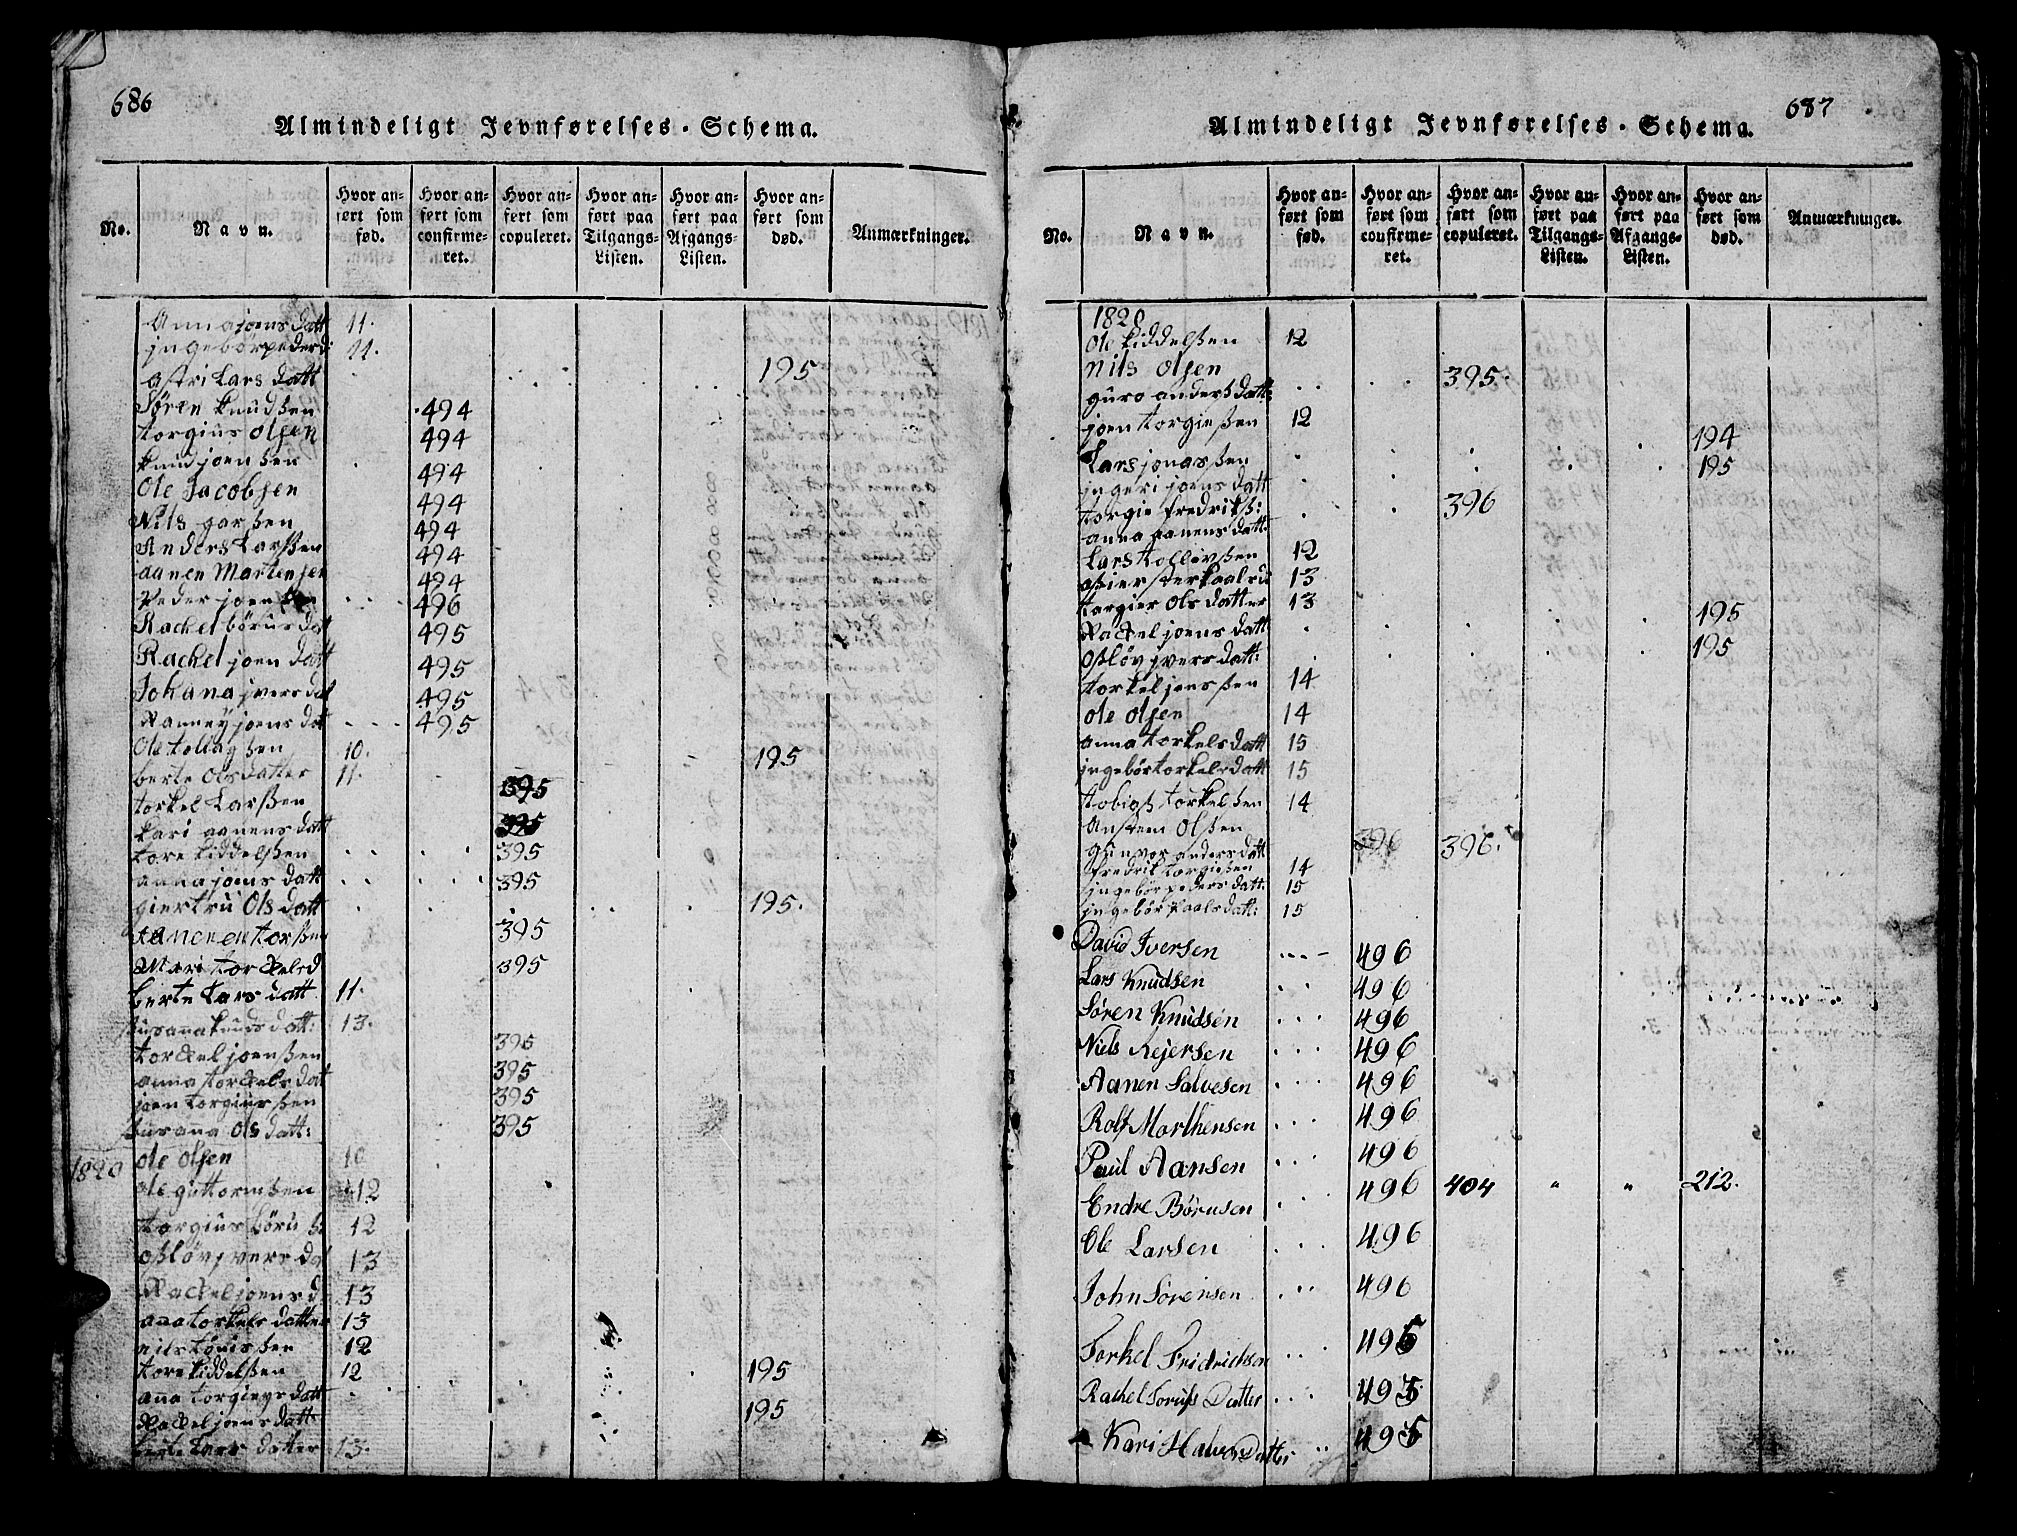 686
Almindeligt Jevnførelses-Schema.
No. Navn. Hvor anført som fød. Hvor anført som confirmeret. Hvor anført som copuleret. Hvor anført paa Tilgangs-Listen. Hvor anført paa Afgangs-Listen. Hvor anført som død. Anmærkninger.
Anna joens datt 11.
jngebor peders d 11.
astri Lars datt 195
Søren knudsen 494
torgius olsen 494
knud joensen 494
Ole Jacobsen 494
Nils garsen 494
Anders Larsen 494
aanen Martensen 494
Peder joensen 496
Rachel børus dat 495
Rachel joen datt 495
Johana jvers dat 495
Ranney joens dat 495
Ole tollagsen 10. 195
berte olsdatter 11.
torkel Larsen 395
kari aanens datt 395
tore kiddelsen 395
anna joens datt 395
giertru Ols datt 195.
Aanen torsen 395
Mari torckels d 395
berte Lars datt 11.
susana knuds datt: 13.
torckel joensen 395
anna torckels dat 395
joen torgiersen 395
susanna Ols datt: 395
1820 ole olsen 10
ole guttormsen 12
torgius børu se 12
osløv jvers dat 13
Rackel joens d 13
ana torkels datter 13
nils tønissen 12
tore kiddelsen 12 195
ana torgieys datt
Rackel joens datt: 195
berte Lars datter 13.
687
Almindeligt Jevnførelses-Schema.
No. Navn. Hvor anført som fød. Hvor anført som confirmeret. Hvor anført som copuleret. Hvor anført paa Tilgangs-Listen. Hvor anført paa Afgangs-Listen. Hvor anført som død. Anmærkninger.
1820
Ole kiddelsen 12
Nils Olsen 395.
guro anders datt:
joen torgiesen 12
Lars jonassen 194
jngeri joens datt 195
torgie fredriks: 396
anna aanens datt:
Lars tolløvsen 12
13
torgier Ols datter 13
Rackel joens datt 195
Osløv jvers datt: 195
torkel jenssen 14
ole olsen 14
anna torkels datt 15
jngebør torkels datt 15
tobias torkelsen 14
Anstein Olsen
gunvor anders datt 396 396.
fredrik torgiesen 14
jngebør peders datt. 15
jngebør Paals datt: 15
David Iversen 496
Lars Knudsen 496
Søren Knudsen 496
Niels Rejersen 496
Aanen Salvesen 496
Rolf Marthensen 496
Paul Aansen 496
Endre Børusen 496 404 " " 212.
Ole Larsen 496
John Sørensen 496
Torkel Fridrichsen 495
Rachel Datter 495
Kari Halvors Datter 495